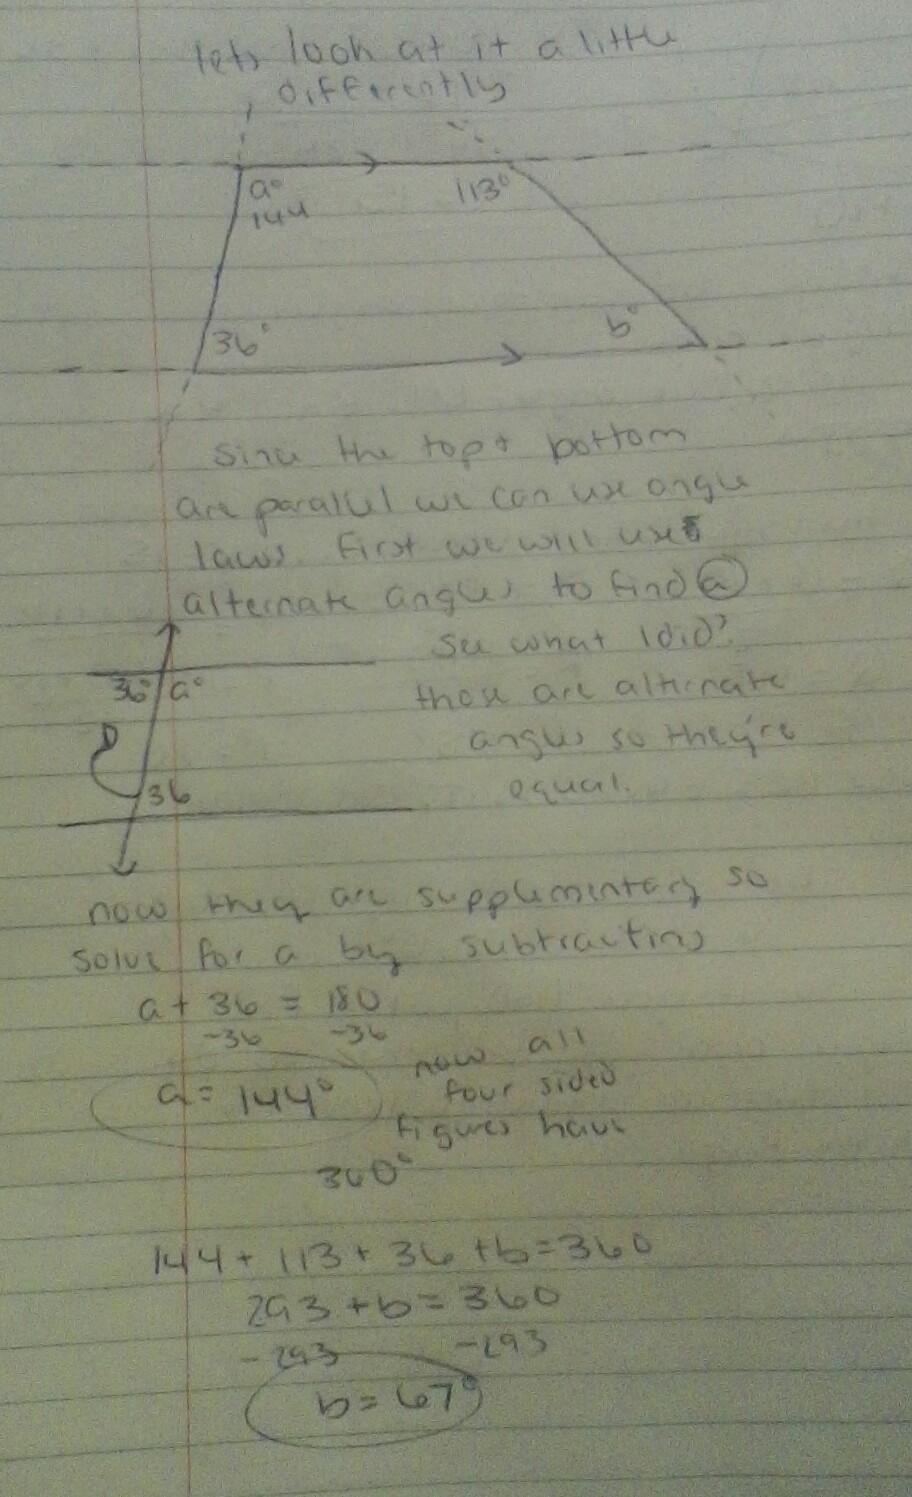 lets look at it a little
differently
a° 113°
144
36° b°
Since the top + bottom
are parallel we can use angle
laws. First we will use
alternate angles to find a
See what I did?
36° a°
those are alternate
angles so they're
36
equal.
now they are supplementary so
solve for a by subtracting
a + 36 = 180
-36 -36
a = 144°
now all
four sided
figures have
360°
144 + 113 + 36 + b = 360
293 + b = 360
-293 -293
b = 67°